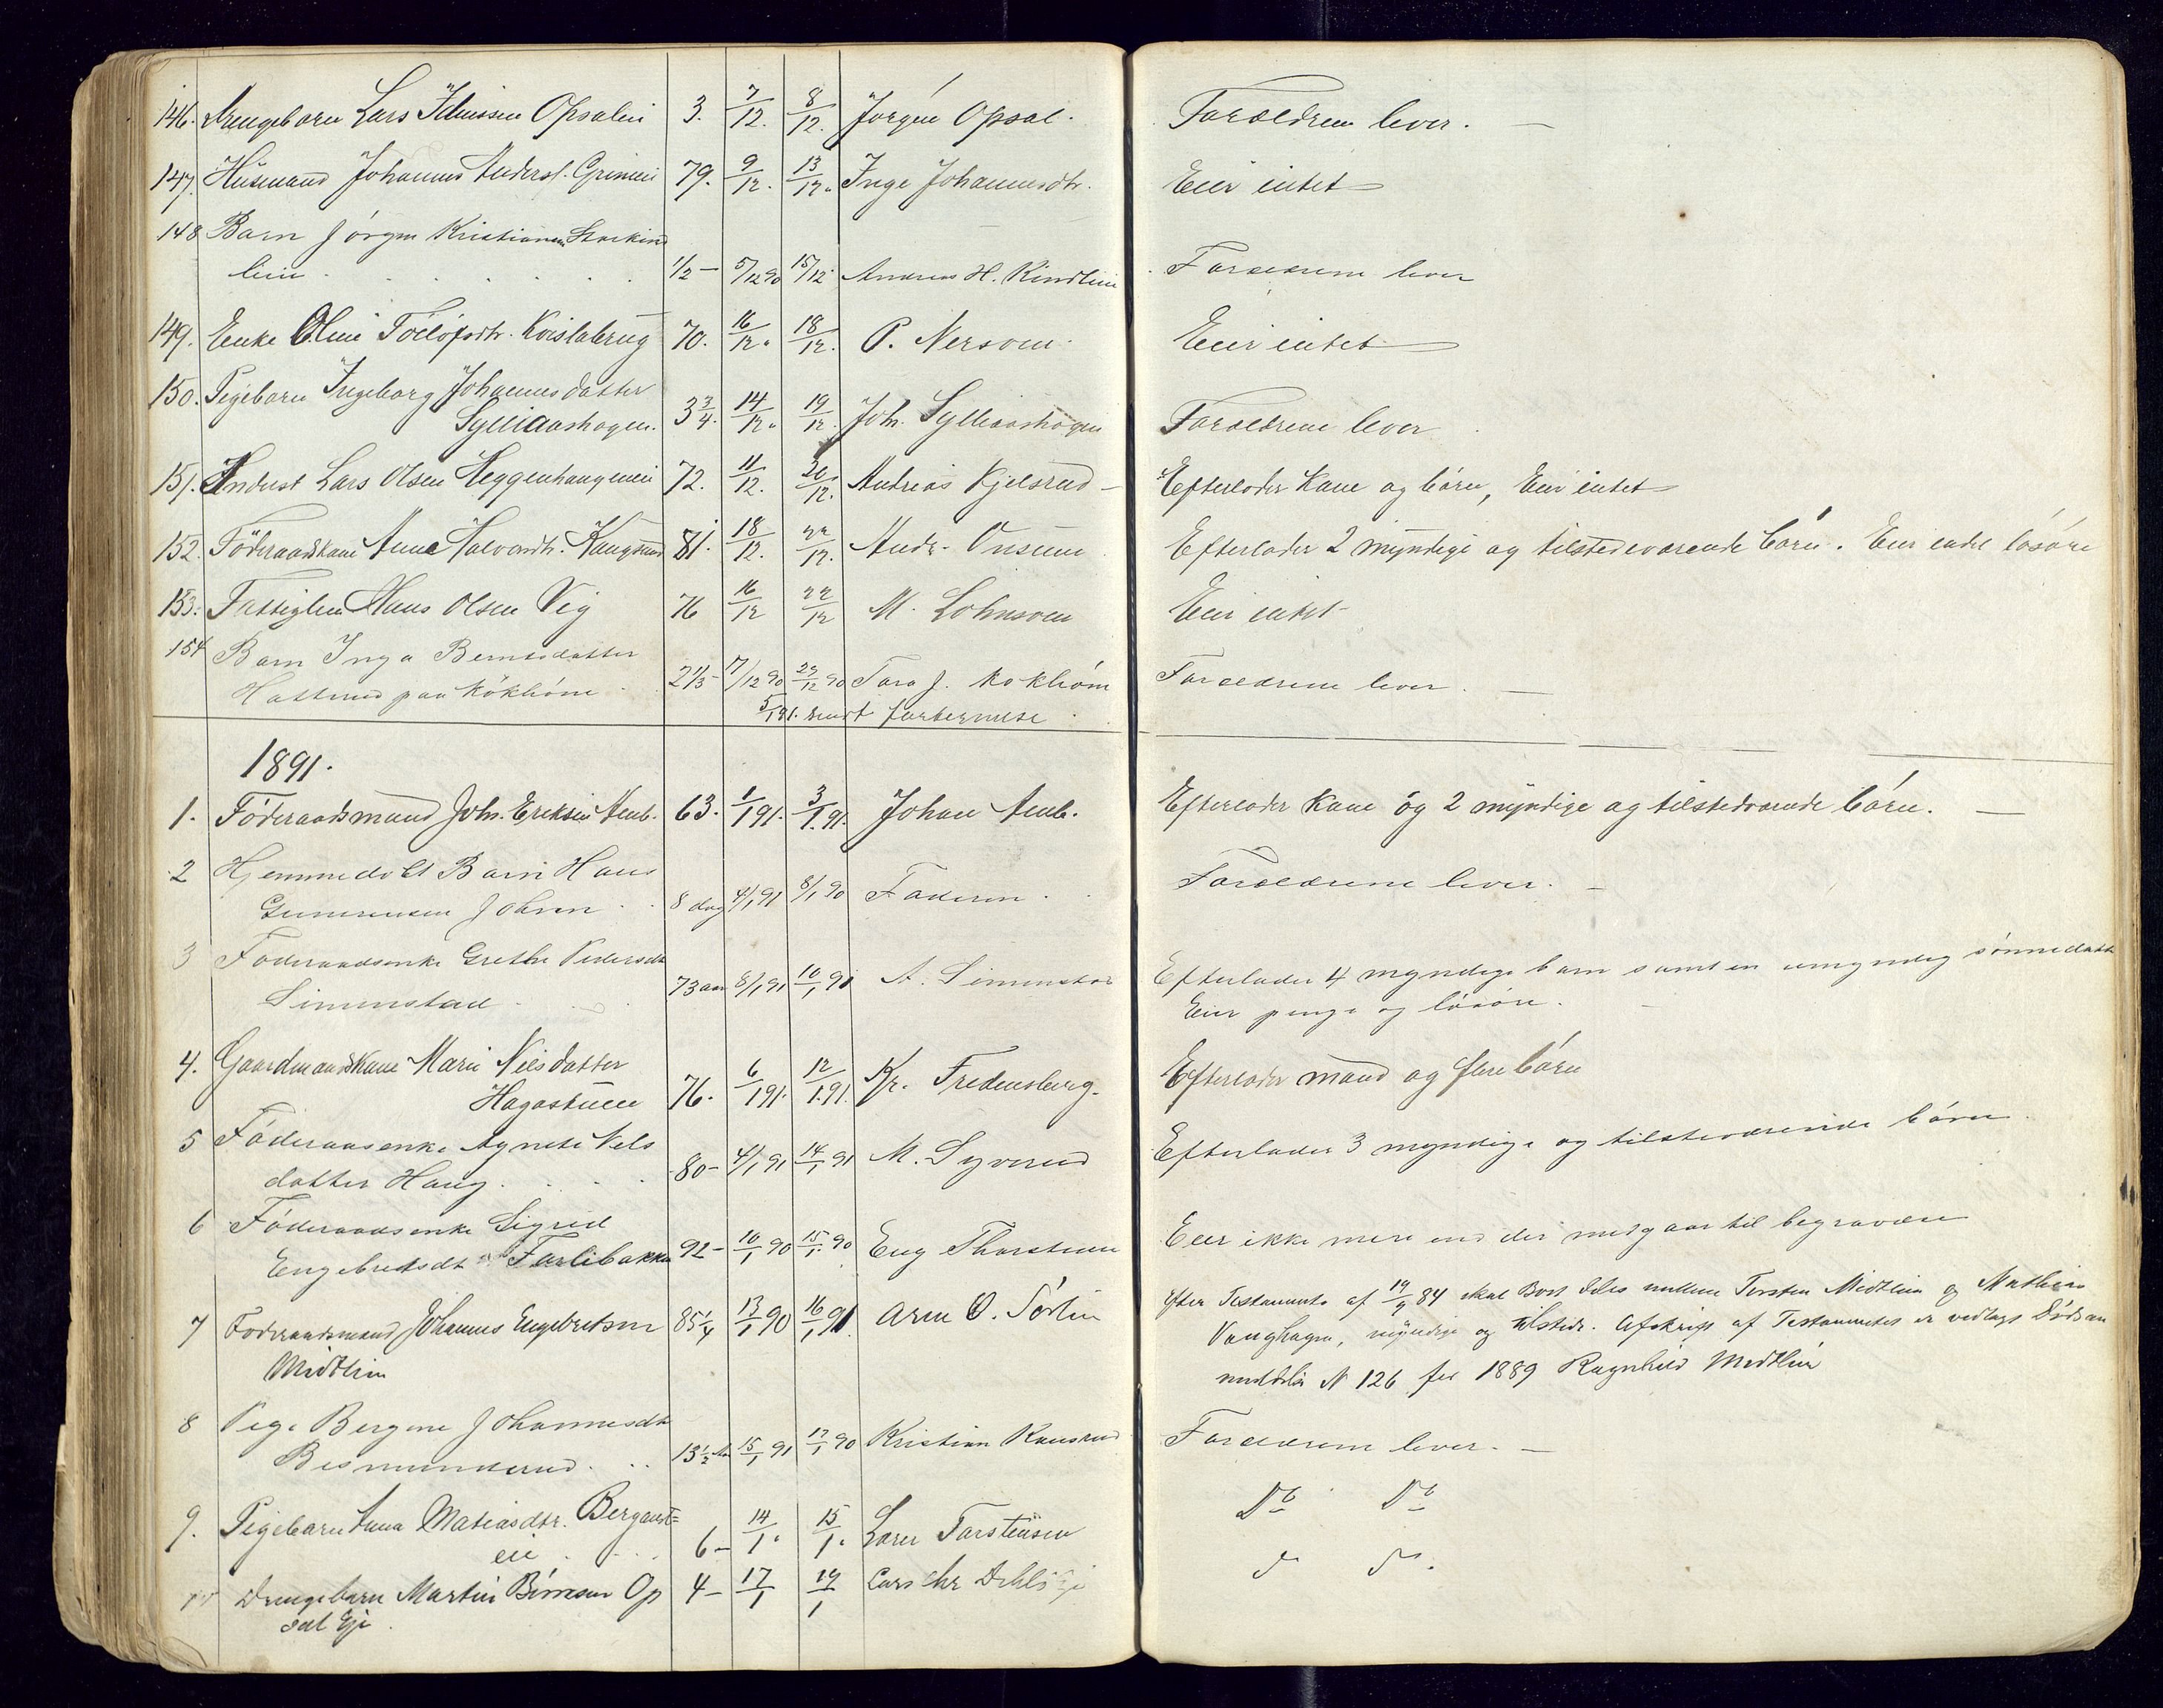 146. Drengebarn Lars Opsalen 3. 7/12. 8/12. Jörgen Opsal. Forældrene lever. —
147. Husmand Johannes Anders. Grimeie 79. 9/12. 13/12. Inge Johannesdtr. Eier intet —
148 Barn Jörgen Kristiansen
lien 1/2 — 5/12 90 15/12 Andreas H. Kindlien Forældrene lever
149. Enke Oline Kvislabrug 70. 16/12. 18/12. P. Nersveen. Eier intet —
150. Pigebarn Ingeborg Johannesdatter
Sylliaashagen. 3 3/4. 14/12. 19/12. Joh. Sylliaashagen Forældrene lever
151. Inderst Lars Olsen 72. 11/12. 20/12. Andreas Kjelsrud — Efterlader Kane og börn, Eier intet —
152. Föderaadskane Anne Halvorsdtr. 81. 18/12. 22/12. Andr. Onsum Efterlader 2 myndige og tilstedeværende börn. Eier endel lösöre
153. Fattiglem Hans Olsen Vig 76 16/12 22/12 M. Eier intet
154 Barn Inga Berntsdatter
Hattrud paa Kökhóm 2 1/3 — 7/12 90 29/12 90 Tora J. Forældrene lever. —
5/1 91. sendt
1891.
1. Föderaadsmand Joh. Eriksen Aml. 63. 1/1 91. 3/1. 91. Johan Aml. Efterlader Kane og 2 myndige og tilstedværende börn. —
2 Hjemmedöbt Barn Hans
Johnsen 8 dag 4/1 91 8/1 90 Faderen. Forældrene lever. —
3 Föderaadsenke Grethe Pedersdt
Simenstad 73 aar 8/1 91 10/1 91 A. Simenstad Efterlader 4 myndige barn samt en umyndig sönnedatt
Eier penge og lösöre. —
4. Gaardmandskane Marie Nilsdatter
Hagastuen 76. 6/1 91. 12/1. 91. Kr. Fredensborg. Efterlader mand og flere börn
5 Föderaasenke Agnete Nels
datter Haug 80 — 4/1 91 14/1 91 M. Syverud Efterlader 3 myndige og tilsteværende börn.
6 Föderaadsenke Sigrid
Engebretsdt Farlibakken 92 — 10/1 90 15/1. 90 Eng Thorstuen Eier ikke mere end der medgaar til begravelse
7 Föderaadsmand Johannes Engebretsen 85 1/4 13/1 90 16/1 91. Arne O. Efter Testamente af 19/9 84 skal Boet deles mellem Torsten Midtlien og Mathias
Midtlien Vanghagen, myndige og tilstede. Afskrift af Testamentet er vedlagt Dödsan
meldelse N 126 for 1889 Ragnhild Midtlien
8 Pige Bergine Johannesdt
13 1/2 aar 15/1 91 17/1 90 Kristian Forældrene lever. —
9. Pigebarn Anna Matiasdtr. Bergaust=
eie 6 — 14/1. 15/1. Lars Torstensen Do Do
Drengebarn Martin Op 4 — 17/1 19/1 Lars Chr
sal Eje.